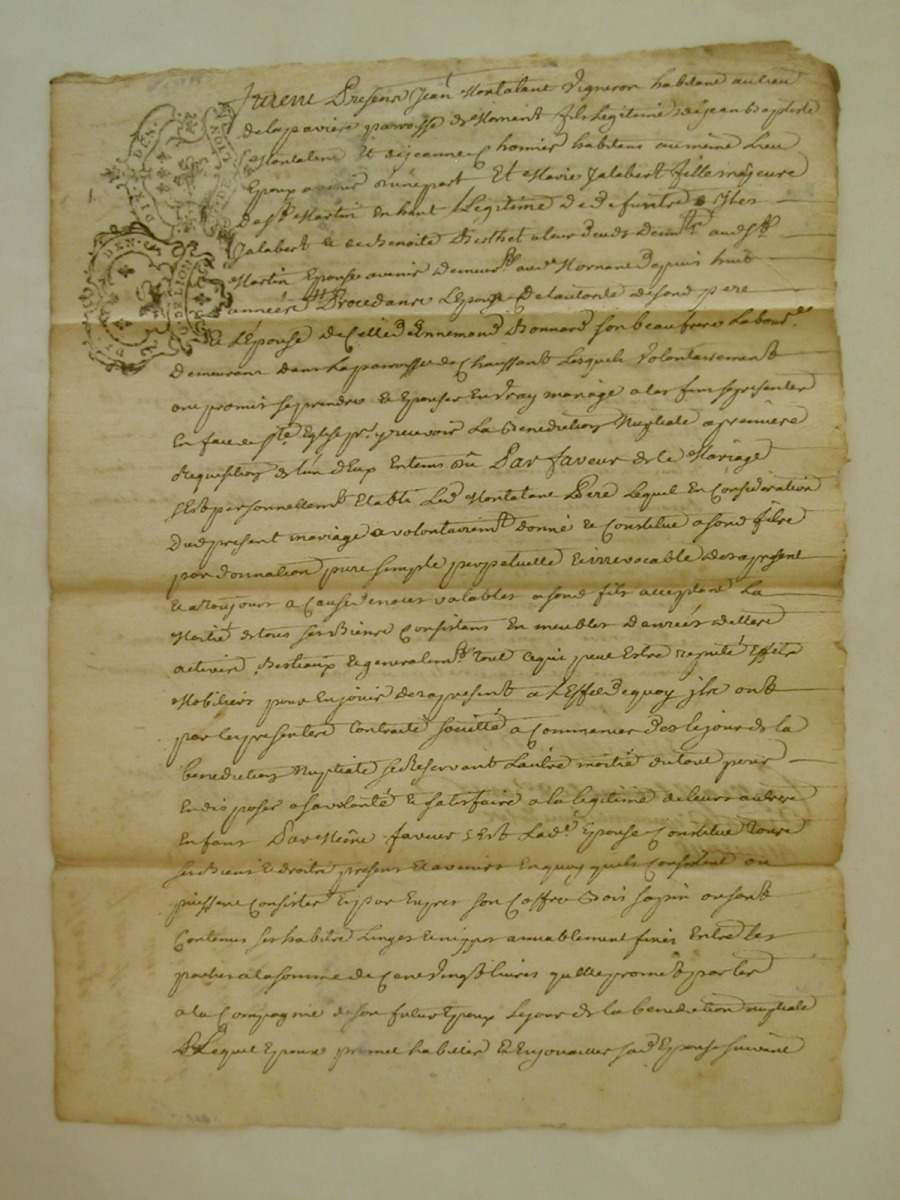 furent Presens Jean Montalant Vigneron habitant au lieu
de la paroisse de Mornant fils Legitime de jean Baptiste
Montalant Et de jeanne habitans au même Lieu
Epoux avenir d'une part Et Marie Jalabert fille majeure
de St Martin En haut Legitime de defuntre
Jalabert & de Benoite Berthet a leur deceds audt St
Martin Epouse avenir demeurte aud Mornant depuis huit
années Procedans L'Epoux De lautorité desond pere
Et L'Epouse De Celle d'Ennemond Bonnard son beaufrere Labour.
Demeurant dans La parroisse de Chaussant Lesquels Volontairement
ont promis se prendre & Epouser En Vray mariage a Ces fins se presenter
En face de Ste Eglise pr. y recevoir La Benediction Nuptiale a premiere
Requisition de lun d'Eux Entems du Par faveur de le Mariage
s'Est personnellemt Etabli Led Montalant Pere Lequel En Consideration
Dud present mariage a volontairemt donné & Constitué a sond fils
par donnation pure simple perpetuelle & irrevocable des apresent
& a toujours a Cause de nöces valables a sond fils acceptant La
Moitié de tous ses Biens Consistans En meubles danrées dettes
actives Bestiaux & generalemt tout Ce qui peut Estre reputé Effets
Mobiliers pour En jouir des apresent a L'Effet de quoy ils ont
par les presentes Contracté société a Commencer des le jour de la
benediction Nuptiale se Reservant Lautre moitié du tout pour
En disposer a sa volonté & satisfaire a la legitime de leurs autres
Enfans Par Même faveur s'Est Lade Epouse Constitué tous
ses Biens & droits presens Et avenirs En quoy quils Consistent ou
puissent Consister & par Expres son Coffre Bois sapin ou sont
Contenus ses habits Linges & nippes amiablement fixés Entre les
parties a la somme de Cent Vingt Livres quelle promet porter
a la Compagnie de son futur Epoux Lejour de la benediction nuptiale
Lequel Epoux promet habiller & Enjouailler sad Epouse suivant